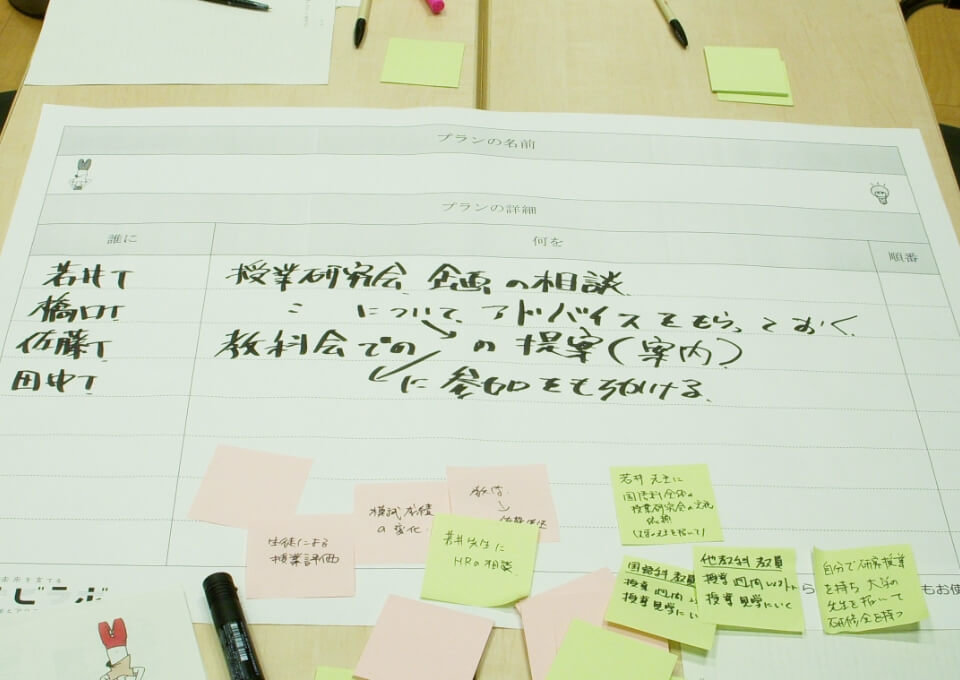 プランの名前
プランの詳細
誰に
何を
順番
若井T
授業研究会 企画の相談
橋口T
〃 について、アドバイスをもらっておく。
佐藤T
教科会での の提案(案内)
田中T
に参加をもちかける。
生徒による
授業評価
模試成績
の変化
若井先生に
HRの相談
若井先生に
国語科全体の
授業研究会の
依頼
国語科教員
授業
授業見学に
他教科教員
授業
授業見学にいく
自分で研究授業
を持ち 大学の
先生を招いて
研修会を持つ
もお使